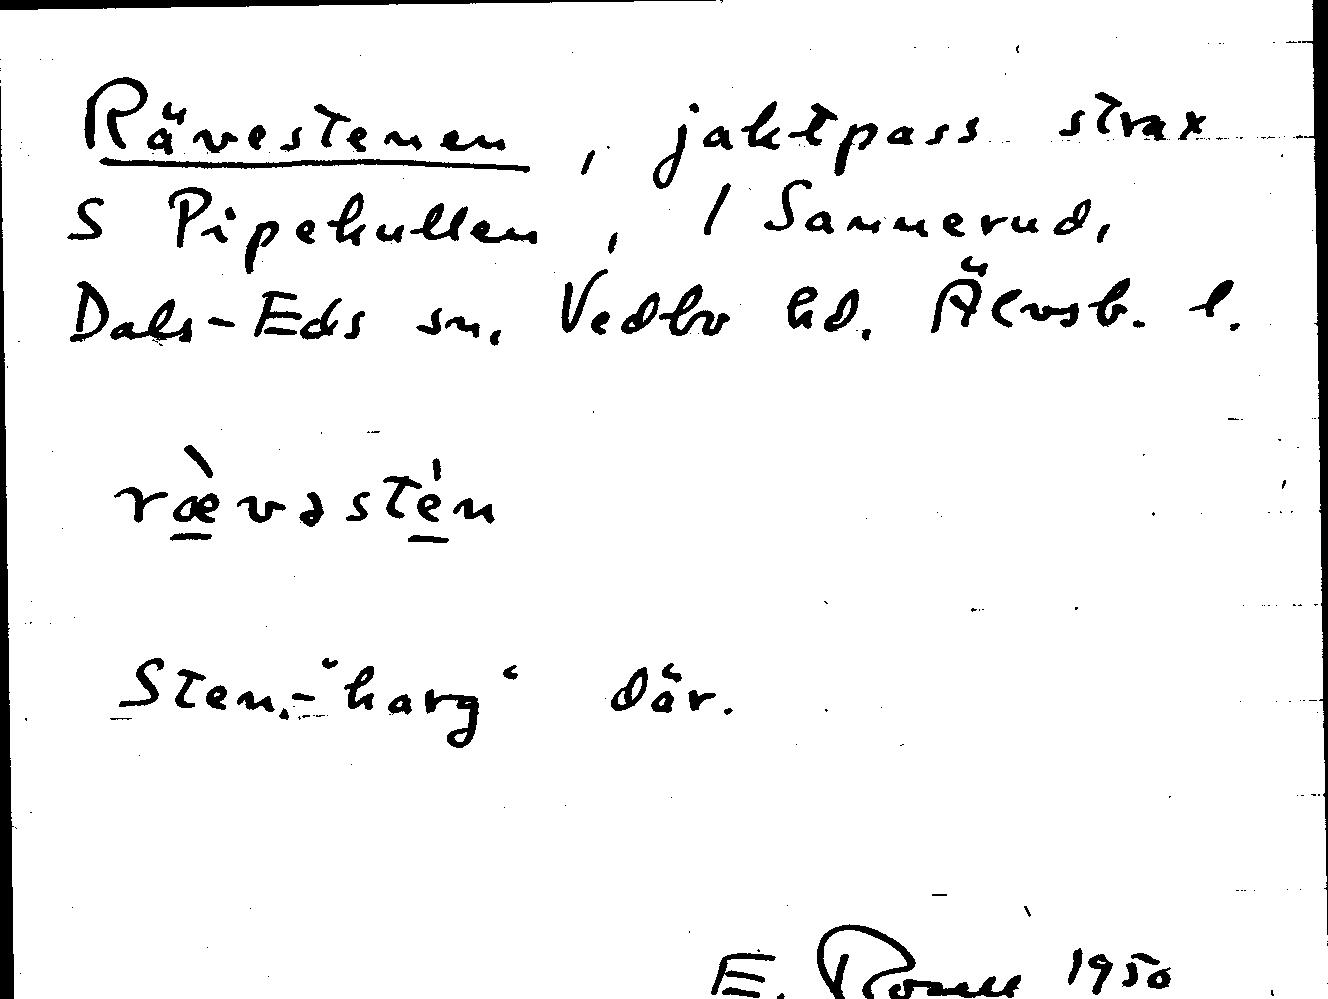 Rävestenen, jaktpass strax
S Pipekullen, 1 Sannerud,
Dals-Eds sn. Vedbo hd. Älvsb. l.
rævəstén
Sten-"harg" där.
E. Rosell 1950